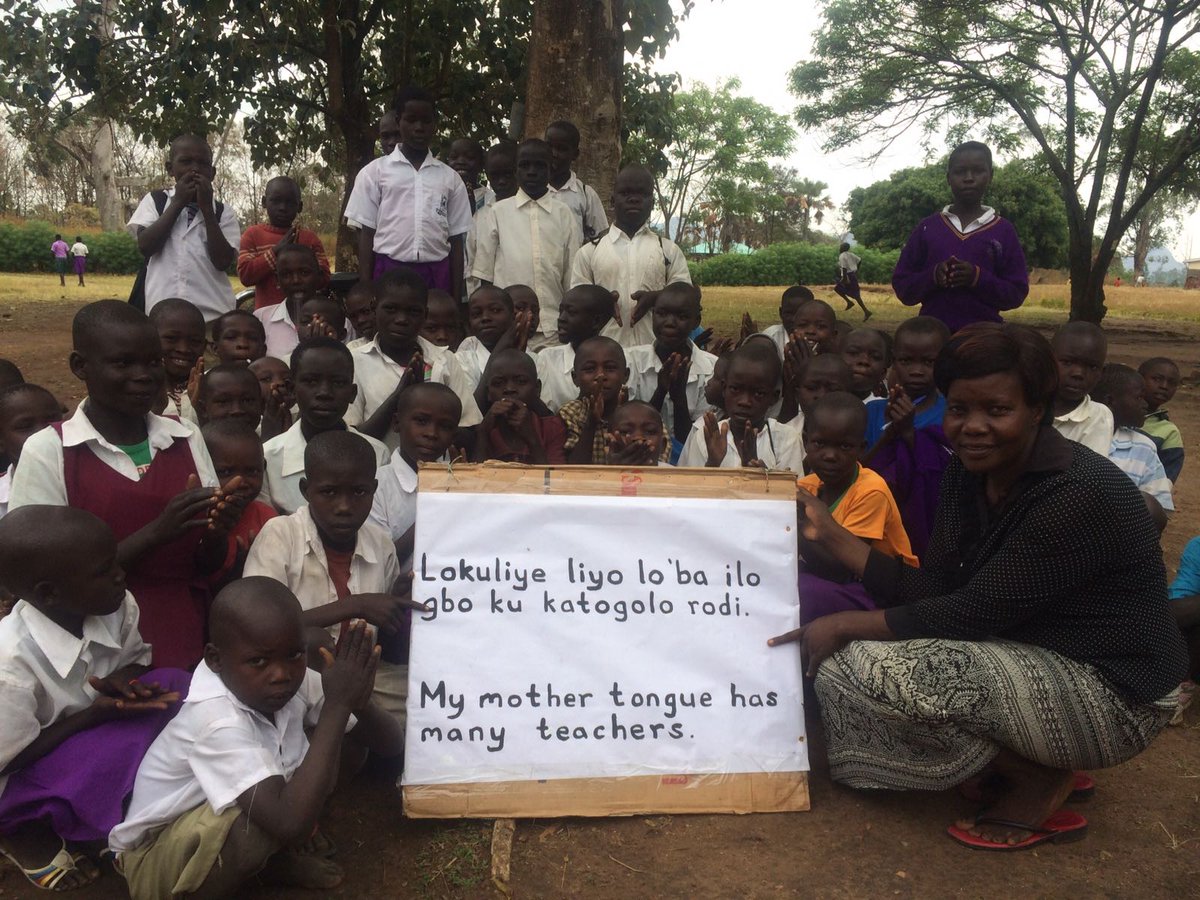 Lokuliye liyo lo'ba ilo
gbo ku katogolo rodi.
My mother tongue has
many teachers.